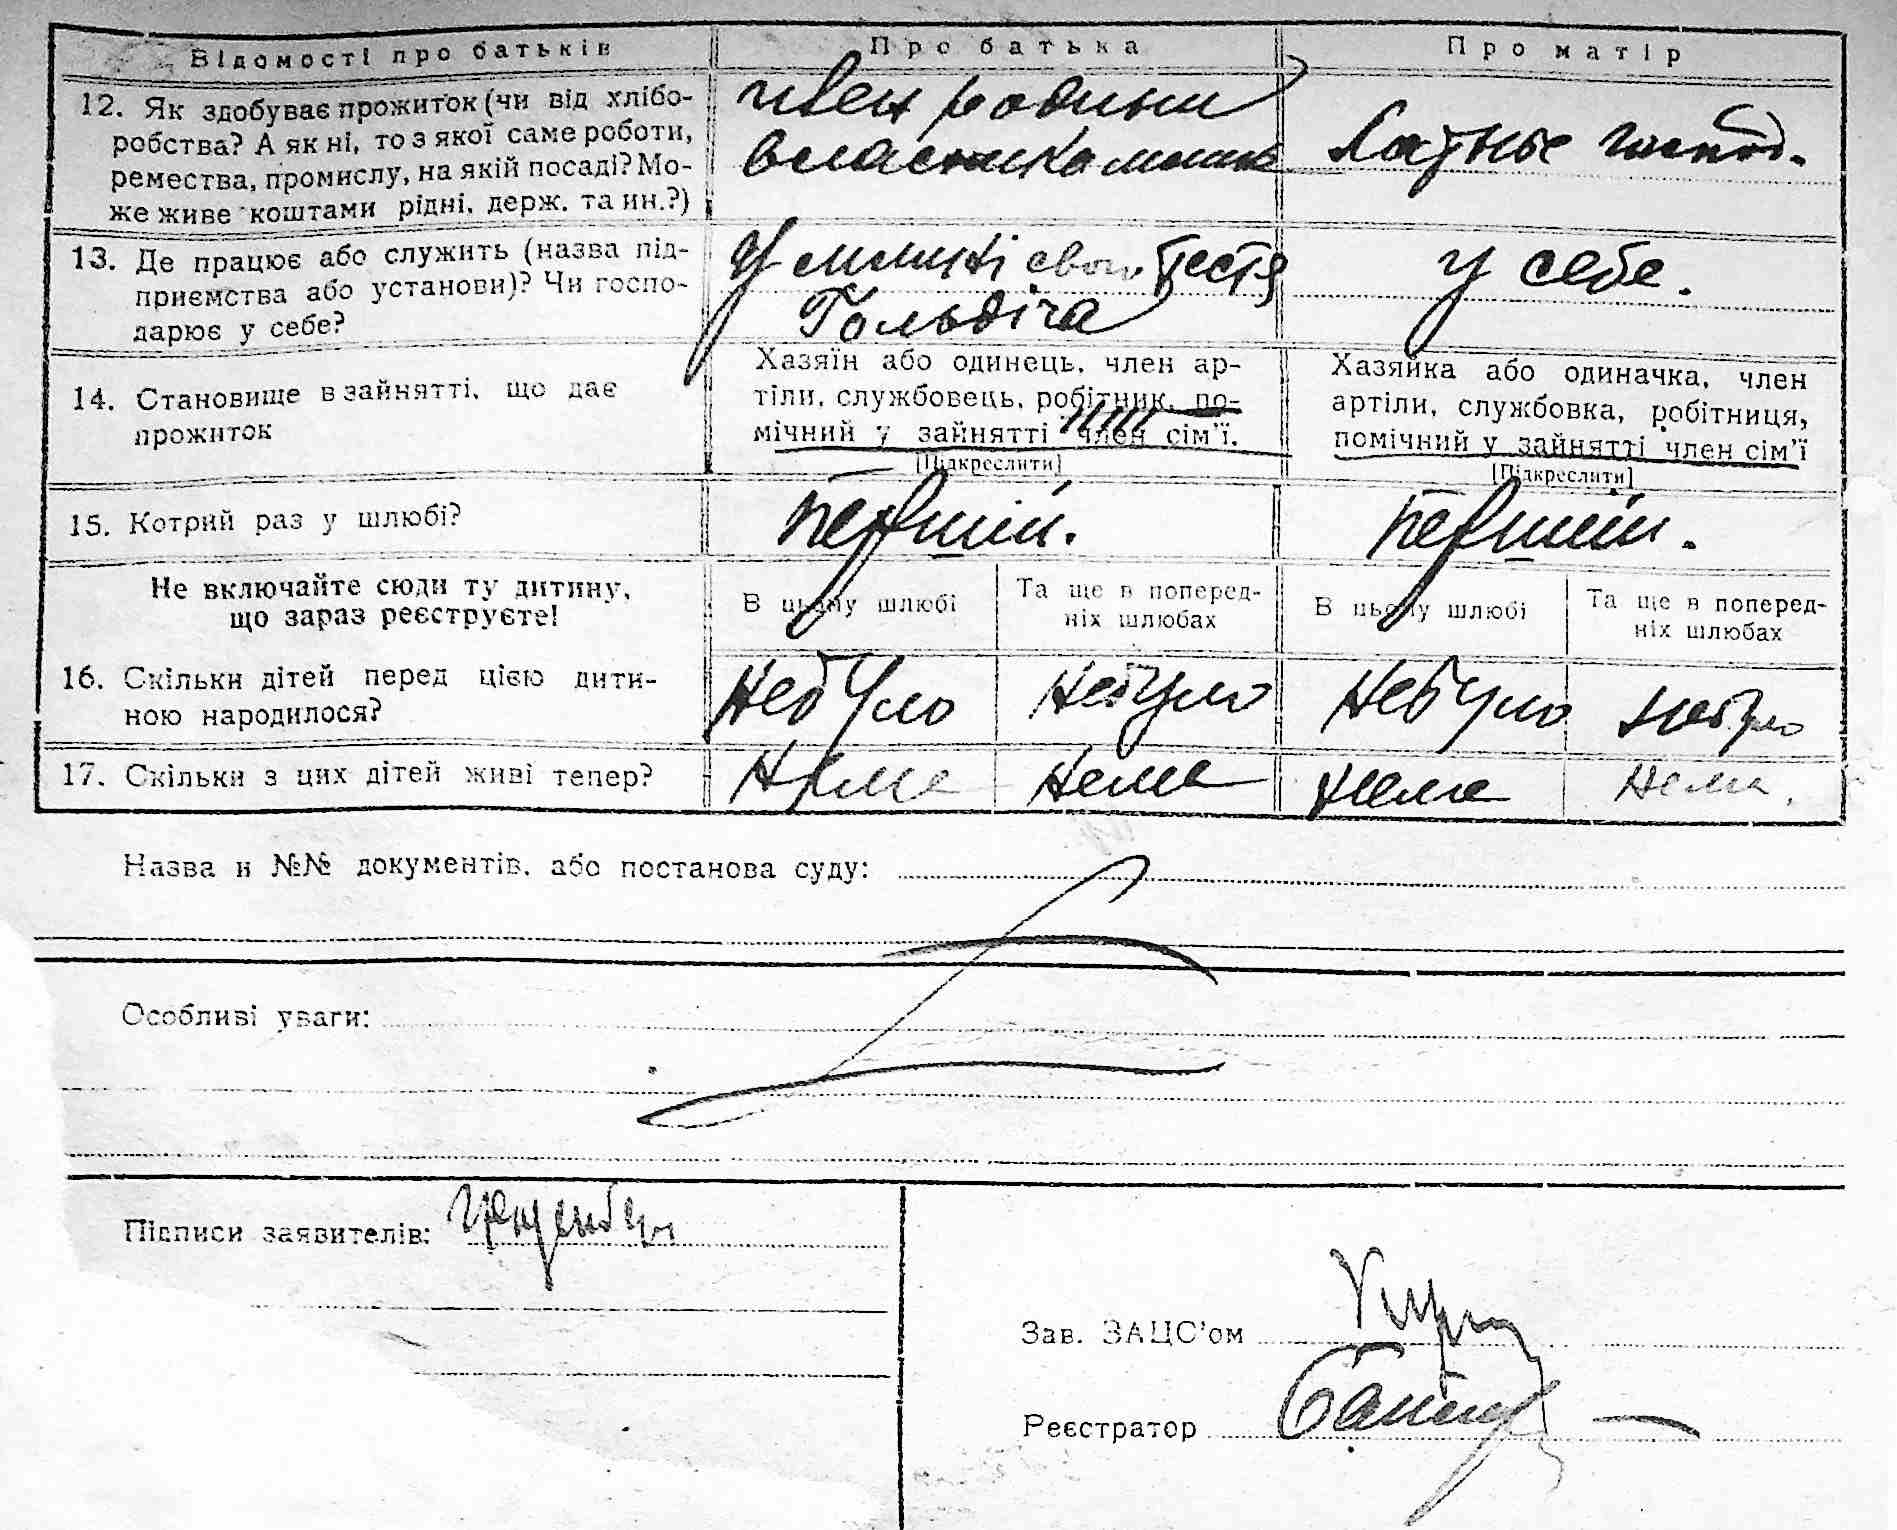 Відомості про батьків Про батька Про матір
12. Як здобуває прожиток (чи від хлібо-
робства? А як ні, то з якої саме роботи,
ремества, промислу, на якій посаді? Мо-
же живе коштами рідні, держ. та ин.?)
член родини
власника млина
Хатнє господ.
13. Де працює або служить (назва під-
приємства або установи)? Чи госпо-
дарює у себе?
У млині свого тестя
Гольдіча
у себе.
14. Становище в зайнятті, що дає
прожиток
Хазяїн або одинець, член ар-
тіли, службовець, робітник, по-
мічний у зайнятті член сім'ї.
[Підкреслити]
Хазяйка або одиначка, член
артіли, службовка, робітниця,
помічний у зайнятті член сім'ї
[Підкреслити]
15. Котрий раз у шлюбі?
перший. перший.
Не включайте сюди ту дитину,
що зараз реєструєте!
В цьому шлюбі
Та ще в поперед-
ніх шлюбах
В цьому шлюбі
Та ще в поперед-
ніх шлюбах
16. Скільки дітей перед цією дити-
ною народилося?
Небуло Небуло Небуло небуло
17. Скільки з цих дітей живі тепер?
Нема Нема Нема Нема.
Назва й №№ документів, або постанова суду:
Особливі уваги:
Підписи заявителів:
Зав. ЗАЦС'ом
Реєстратор